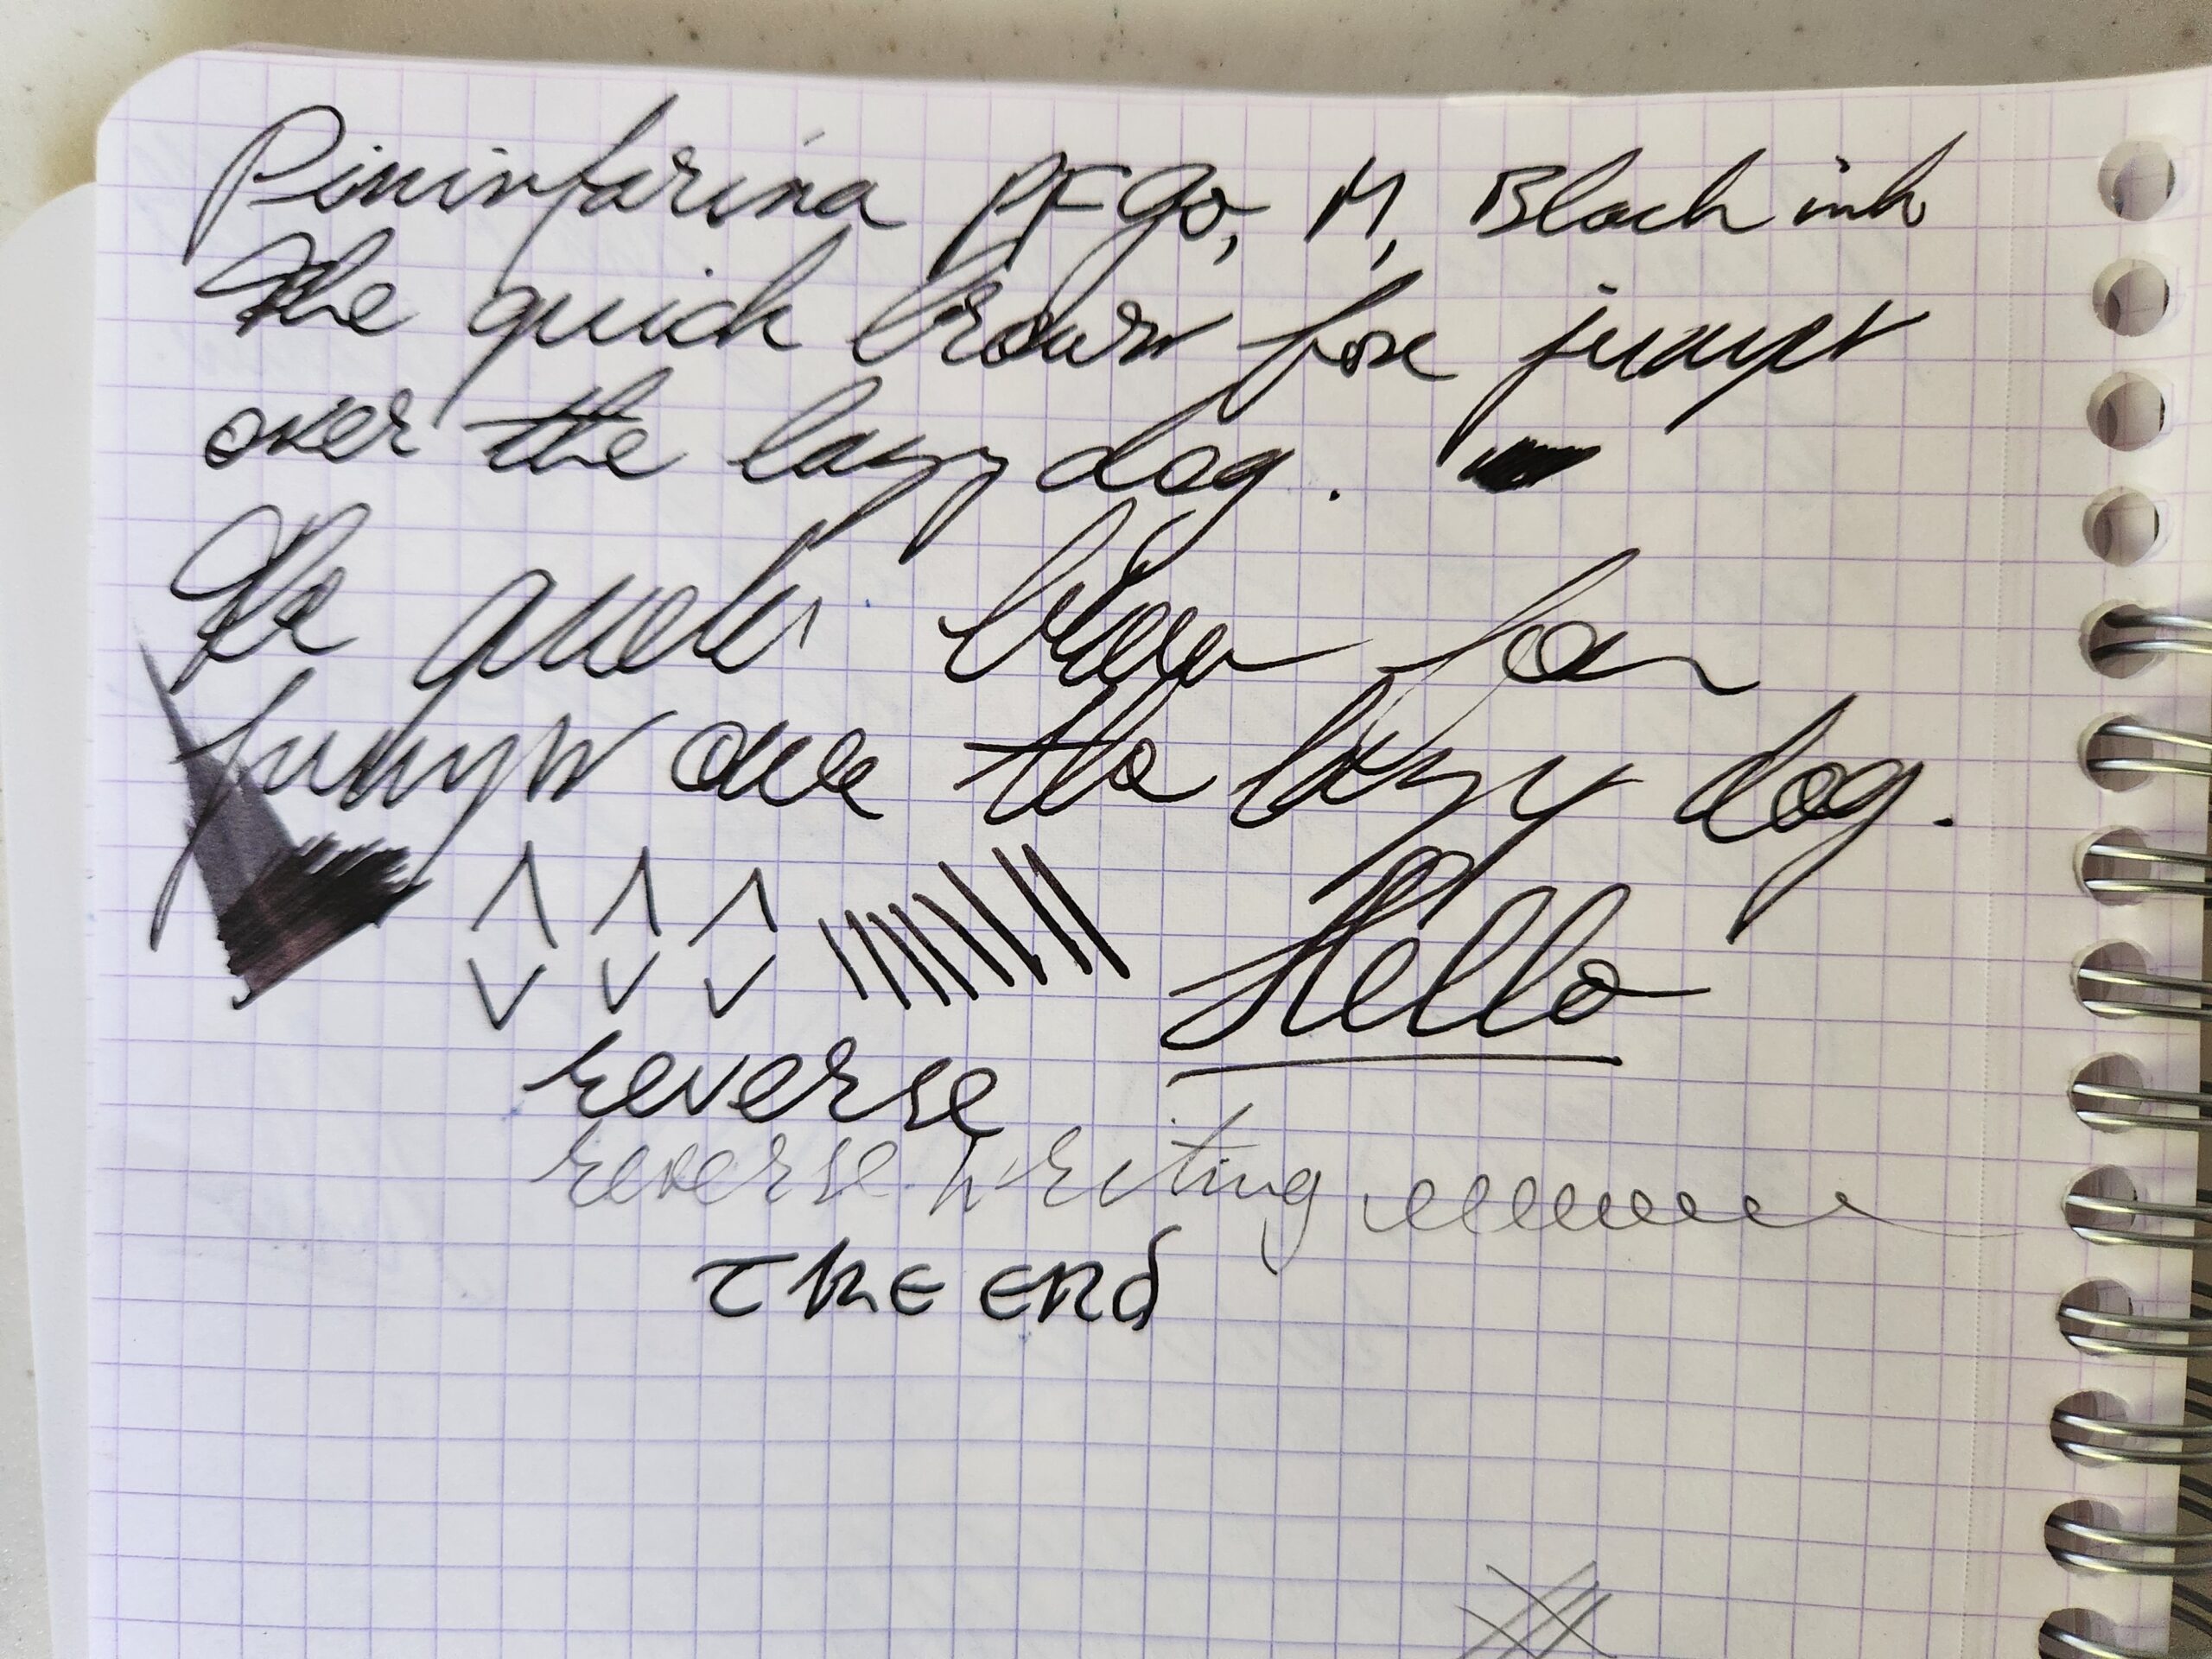 Pininfarina PFGo, M, Black ink
the quick brown fox jumps
over the lazy dog.
the quick brown fox
jumps over the lazy dog.
Hello
reverse
reverse writing
The End